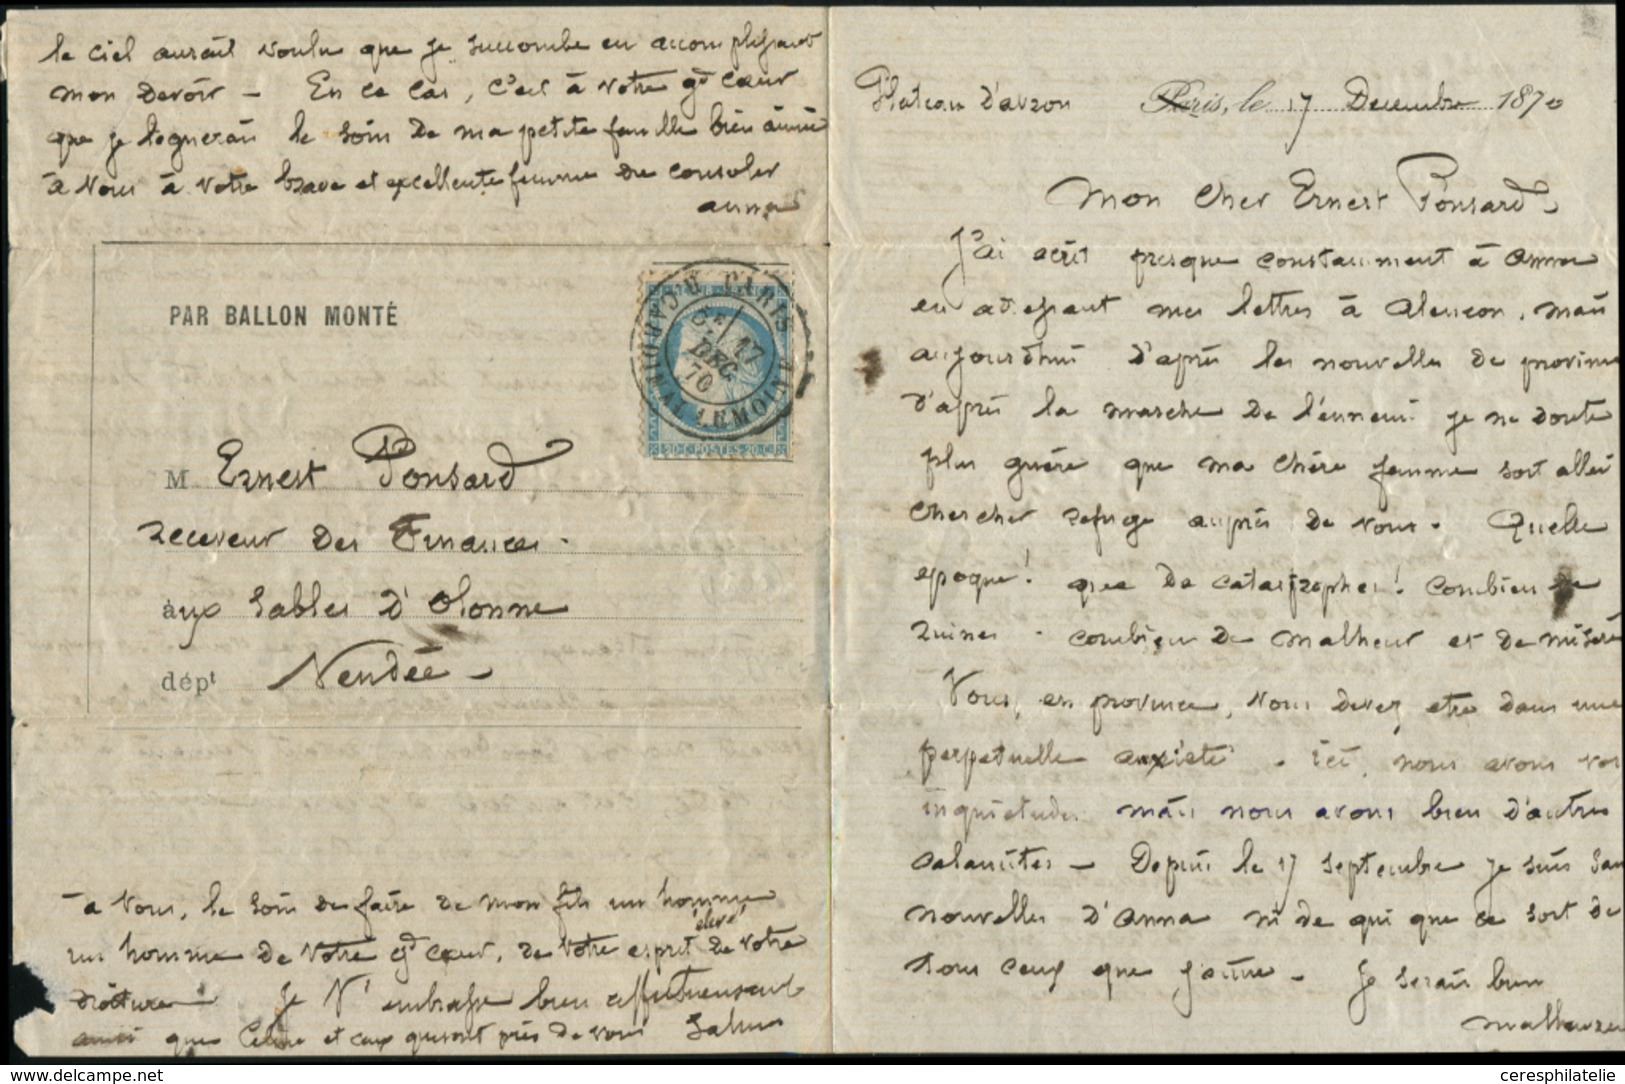 le ciel aurait voulu que je succombe en accomplissant
mon devoir — En ce cas, c'est à votre gd cœur
que je léguerais le soin de ma petite famille bien aimée
à vous à votre brave et excellente femme de consoler
anna
PAR BALLON MONTÉ
PARIS
5E 17
DEC
70
20 C POSTES 20 C
M Ernest Ponsard
receveur des Finances.
aux Sables d'Olonne
dépt Vendée —
à vous, le soin de faire de mon fils un homme
élevé
un homme de votre gd cœur, de votre esprit de votre
droiture Je v' embrasse bien affectueusement
ainsi que Céline et ceux qui sont près de vous
Plateau d'avron Paris, le 17 Decembre 1870
Mon cher Ernest Ponsard
J'ai écrit presque constamment à Anna
en adressant mes lettres à Alençon, mais
aujourd'hui d'après les nouvelles de province
d'après la marche de l'ennemi je ne doute
plus guère que ma chère femme soit allée
chercher refuge auprès de vous. Quelle
epoque! que de catastrophes! combien de
ruines. combien de malheur et de misère
Vous, en province, vous devez etre dans une
perpetuelle anxiété. ici, nous avons vos
inquietudes mais nous avons bien d'autres
calamités — Depuis le 17 septembre je suis sans
nouvelles d'Anna ni de qui que ce soit de
tous ceux que j'aime. Je serais bien
malheureux
ceresphilatelie